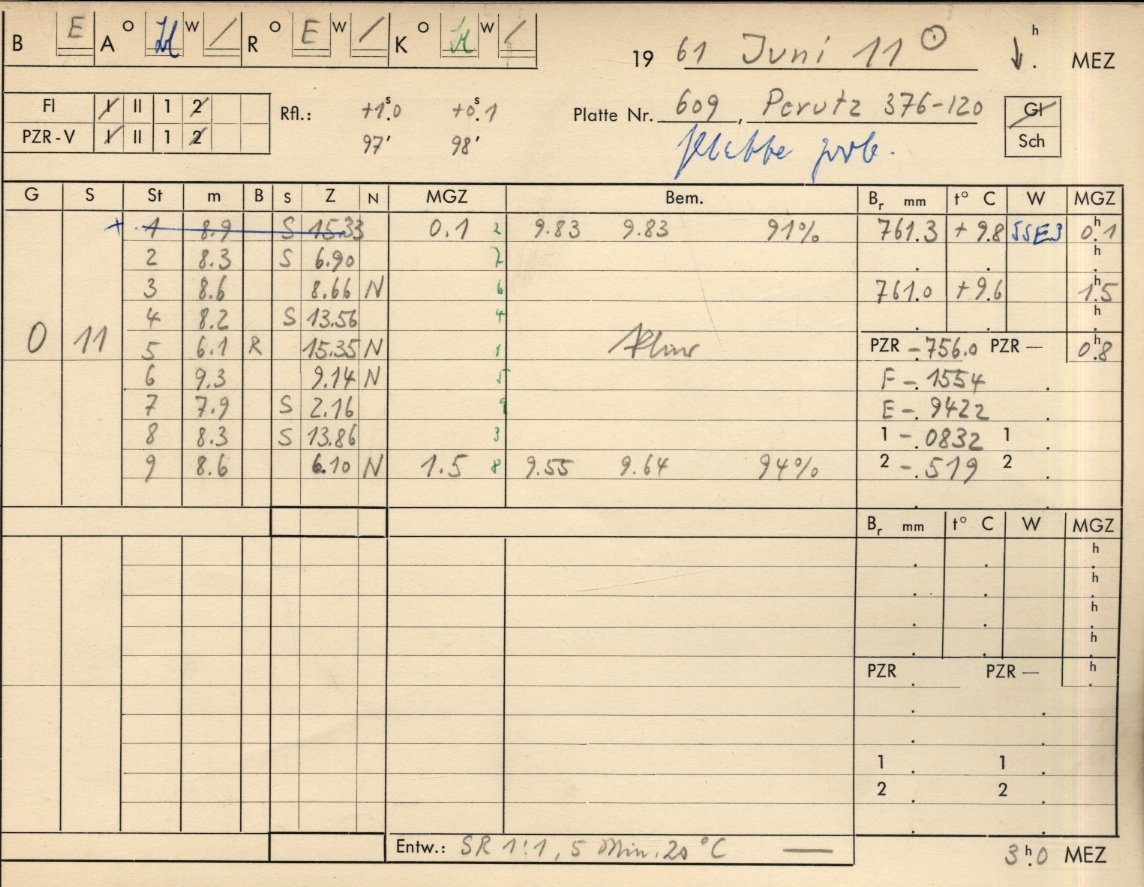 B E A o W / R o E W / K o W /
19 61 Juni 11 ⊙ h . MEZ
Fl I II 1 2 Rfl.: +1ˢ.0 +0ˢ.1 Platte Nr. 609, Perutz 376-120 Gl
PZR-V I II 1 2 97' 98' Sch
G S St m B S Z N MGZ Bem. Br mm t° C W MGZ
+ 1 8.9 S 15.33 0.1 2 9.83 9.83 91% 761.3 +9.8 SSE3 0ʰ.1
2 8.3 S 6.90 7 h
3 8.6 8.66 N 6 761.0 +9.6 1ʰ.5
4 8.2 S 13.56 4 h
0 11 5 6.1 R 15.35 N 1 PZR -756.0 PZR — 0ʰ.8
6 9.3 9.14 N 5 F -.1554
7 7.9 S 2.16 9 E -.9422
8 8.3 S 13.86 3 1 -.0832 1
9 8.6 6.10 N 1.5 8 9.55 9.64 94% 2 -.519 2
Br mm t° C W MGZ
h
h
h
h
PZR PZR — h
1 1
2 2
Entw.: SR 1:1, 5 Min. 20 °C —
3ʰ.0 MEZ